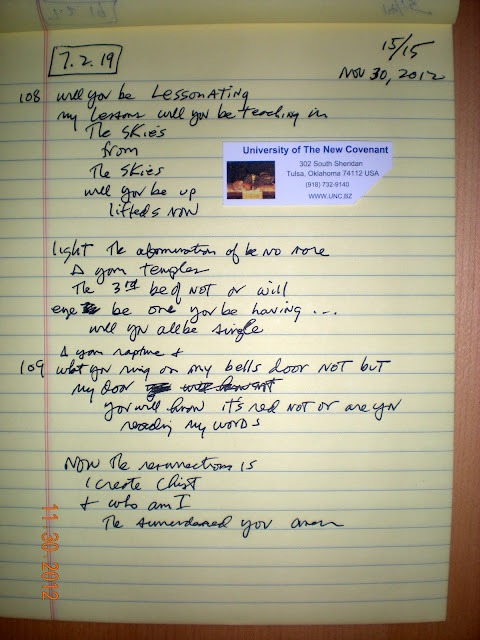 7.2.19
15/15
NOV 30, 2012
108 will you be Lessonating
my Lessons will you be teaching in
The SKIES
from
The SKIES
will you be up
lifteds NOW
University of The New Covenant
302 South Sheridan
Tulsa, Oklahoma 74112 USA
(918) 732-9140
WWW.UNC.BZ
light The abomination of be NO more
Δ your Temples
The 3rd be of NOT or will
eye be one you be having ...
will you all be single
Δ your rapture +
109 what you ring on my bells door NOT but
my door
you will know it's red NOT or are you
reading my words
NOW The resurrections is
i create Christ
+ who am I
The surrendered you
11.30.2012